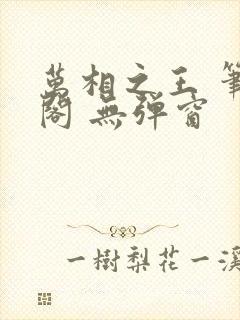 萬相之王 筆
閣 無彈窗
一樹梨花一溪